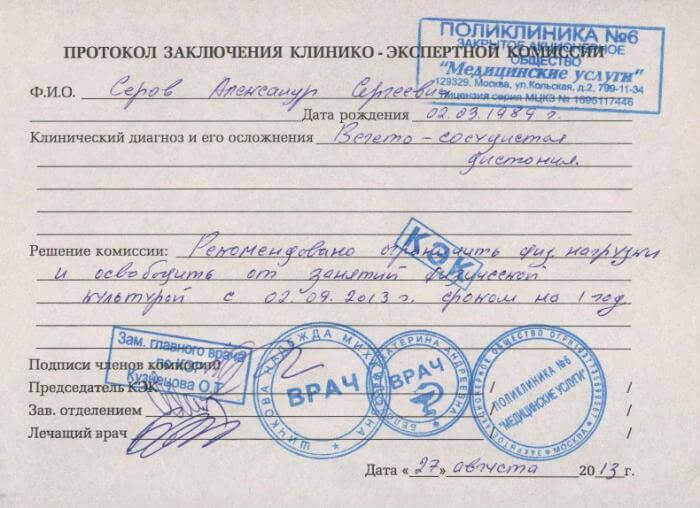 ПОЛИКЛИНИКА №6
ЗАКРЫТОЕ АКЦИОНЕРНОЕ
ОБЩЕСТВО
"Медицинские услуги"
129329, Москва, ул.Кольская, д.2, 799-11-34
Лицензия серия МЦКЗ № 1695117446
ПРОТОКОЛ ЗАКЛЮЧЕНИЯ КЛИНИКО - ЭКСПЕРТНОЙ КОМИССИИ
Ф.И.О. Серов Александр Сергеевич
Дата рождения 02.03.1989 г.
Клинический диагноз и его осложнения Вегето-сосудистая
дистония.
КЭК
Решение комиссии: Рекомендовано ограничить физ нагрузки
и освободить от занятий физической
культурой с 02.09.2013 г. сроком на 1 год
Зам. главного врача
по КЭР
Кузнецова О.Т.
Подписи членов комиссии:
Председатель КЭК / /
Зав. отделением / /
Лечащий врач / /
НАДЕЖДА МИХАЙЛОВНА
ВРАЧ
ЕКАТЕРИНА АНДРЕЕВНА
ВРАЧ
ЗАКРЫТОЕ АКЦИОНЕРНОЕ ОБЩЕСТВО
МОСКВА
ПОЛИКЛИНИКА №6
"МЕДИЦИНСКИЕ УСЛУГИ"
Дата «27» августа 2013 г.